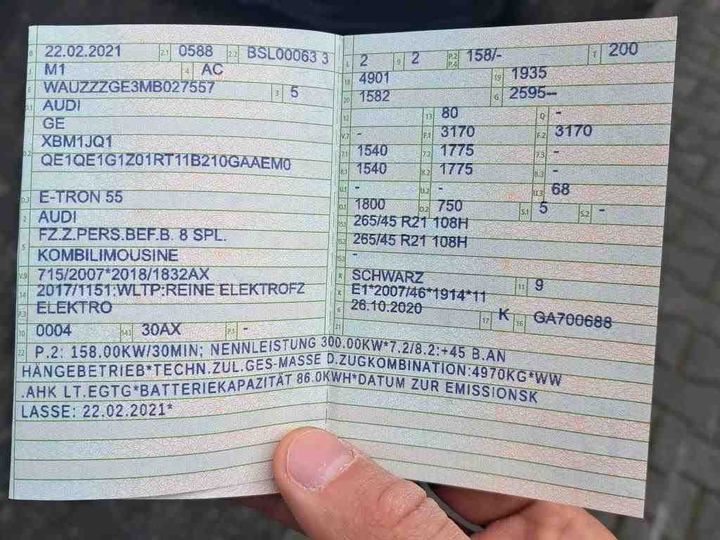 22.02.2021 0588 BSL00063 3
M1 AC
WAUZZZGE3MB027557 5
AUDI
GE
XBM1JQ1
QE1QE1G1Z01RT11B210GAAEM0
E-TRON 55
AUDI
FZ.Z.PERS.BEF.B. 8 SPL.
KOMBILIMOUSINE
715/2007*2018/1832AX
2017/1151;WLTP:REINE ELEKTROFZ
ELEKTRO
0004 30AX -
2 2 158/- 200
4901 1935
1582 2595--
80 -
- 3170 3170
1540 1775 -
1540 1775 -
- - 68
1800 750 5 -
265/45 R21 108H
265/45 R21 108H
-
SCHWARZ 9
E1*2007/46*1914*11
26.10.2020 K GA700688
P.2: 158.00KW/30MIN; NENNLEISTUNG 300.00KW*7.2/8.2:+45 B.AN
HÄNGEBETRIEB*TECHN.ZUL.GES-MASSE D.ZUGKOMBINATION:4970KG*WW
.AHK LT.EGTG*BATTERIEKAPAZITÄT 86.0KWH*DATUM ZUR EMISSIONSK
LASSE: 22.02.2021*